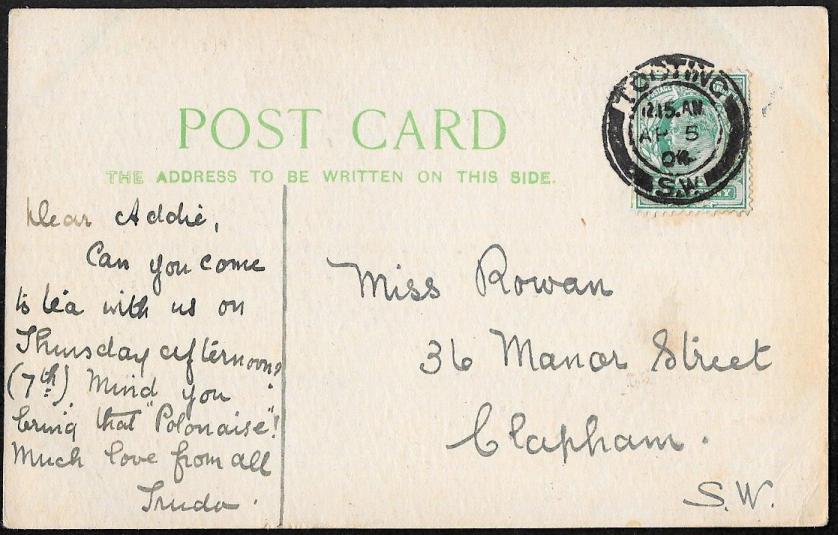 POST CARD
THE ADDRESS TO BE WRITTEN ON THIS SIDE.
TOOTING
12.15.AM
AP 5
04
S.W.
Dear Addie,
Can you come
to tea with us on
Thursday afternoon
(7th). Mind you
bring that "Polonaise"!
Much love from all
Truda.
Miss Rowan
36 Manor Street
Clapham.
S.W.